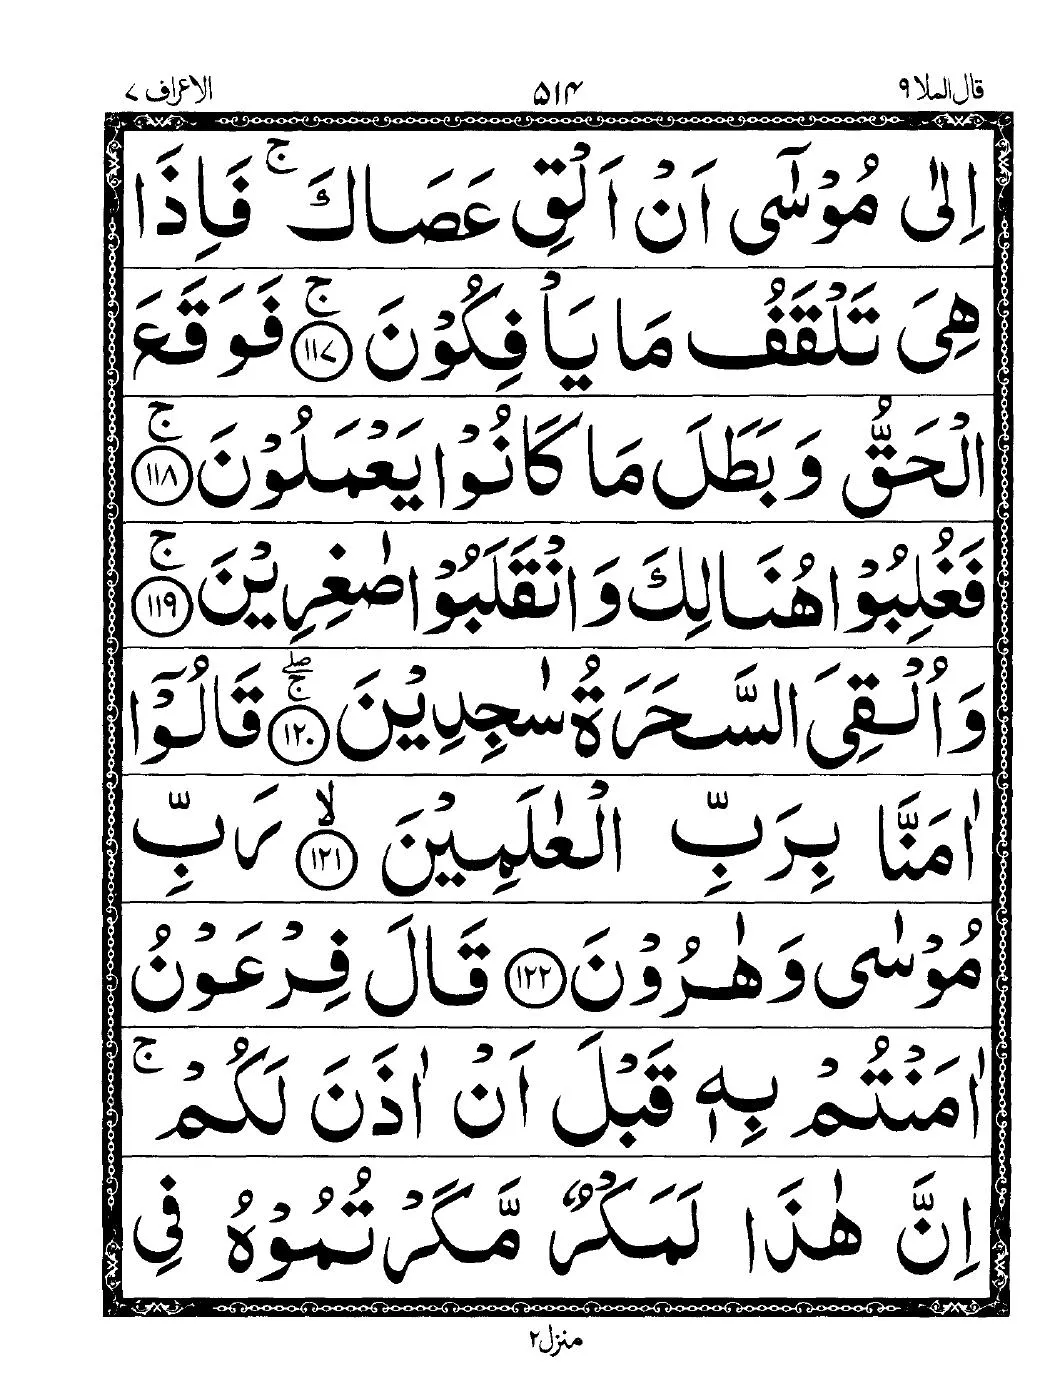 قال الملا ٩
٥١٤
الاعراف ٧
اِلٰى مُوْسٰٓى اَنْ اَلْقِ عَصَاكَ ۚ فَاِذَا
هِىَ تَلْقَفُ مَا يَاْفِكُوْنَ ۚ ﴿١١٧﴾ فَوَقَعَ
الْحَقُّ وَبَطَلَ مَا كَانُوْا يَعْمَلُوْنَ ۚ ﴿١١٨﴾
فَغُلِبُوْا هُنَالِكَ وَانْقَلَبُوْا صٰغِرِيْنَ ۚ ﴿١١٩﴾
وَاُلْقِىَ السَّحَرَةُ سٰجِدِيْنَ ۖۚ ﴿١٢٠﴾ قَالُوْٓا
اٰمَنَّا بِرَبِّ الْعٰلَمِيْنَ ۙ ﴿١٢١﴾ رَبِّ
مُوْسٰى وَهٰرُوْنَ ﴿١٢٢﴾ قَالَ فِرْعَوْنُ
اٰمَنْتُمْ بِهٖ قَبْلَ اَنْ اٰذَنَ لَكُمْ ۚ
اِنَّ هٰذَا لَمَكْرٌ مَّكَرْتُمُوْهُ فِى
منزل ٢